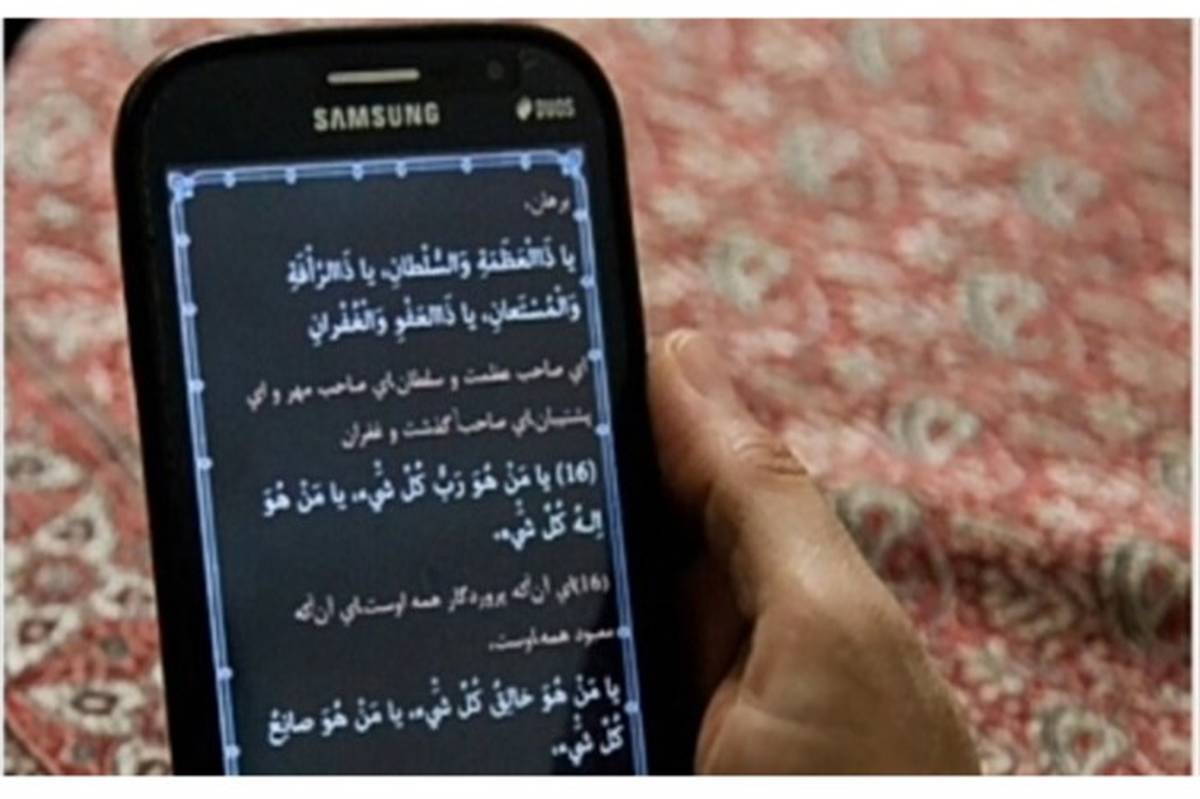 SAMSUNG
DUOS
برهان.
يا ذَاالْعَظَمَةِ وَالسُّلْطانِ، يا ذَاالرَّاْفَةِ
وَالْمُسْتَعانِ، يا ذَاالعَفْوِ وَالْغُفْرانِ
اي صاحب عظمت و سلطان،اي صاحب مهر و اي
پشتيبان،اي صاحب گذشت و غفران
(16) يا مَنْ هُوَ رَبُّ كُلِّ شَيْء، يا مَنْ هُوَ
اِلهُ كُلِّ شَيْء،
(16)اي آن‌كه پروردگار همه اوست،اي آن‌كه
معبود همه‌اوست،
يا مَنْ هُوَ خالِقُ كُلِّ شَيْء، يا مَنْ هُوَ صانِعُ
كُلِّ شَيْء،